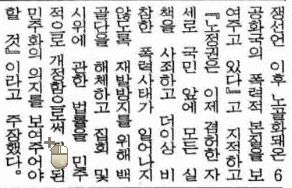 쟁선언 이후 노골화돼온 6
공화국의 폭력적 본질을 보
여주고 있다』고 지적하고
『노정권은 이제 겸허한 자
세로 국민 앞에 모든 실
책을 사죄하고 더이상 비
참한 폭력사태가 일어나지
않도록 재발방지를 위해 백
골단을 해체하고 집회 및
시위에 관한 법률을 민주
적으로 개정함으로써 된
민주화의 의지를 보여주어야
할 것』이라고 주장했다.